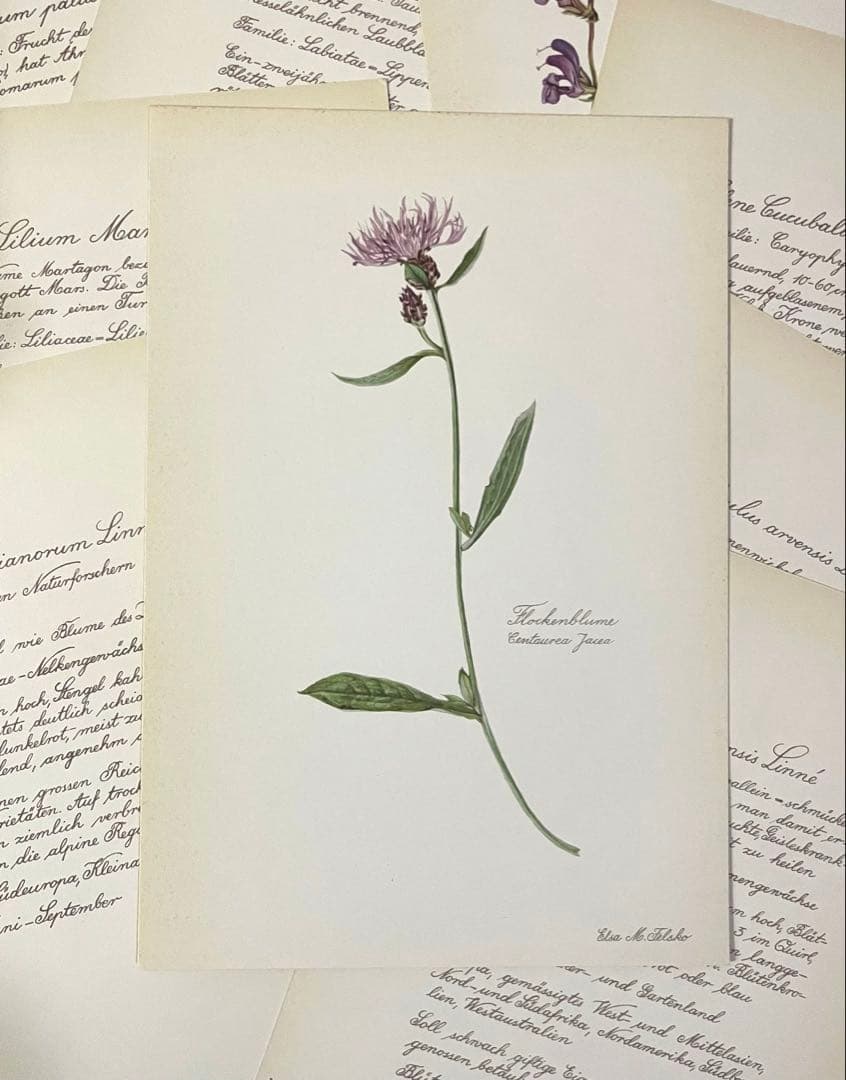 : Frucht de
hat Ähr
omarum
brennend,
esselähnlichen Laubbla
Familie: Labiatae = Lippen
Ein-zweijäh
Blätter
Lilium Mar
me Martagon bez
gott Mars. Die
ken an einen Tur
ie: Liliaceae = Lilie
ene Cucubal
ilie: Caryophy
dauernd, 10-60 cm
aufgeblasenem,
Krone we
ianorum Linn
n Naturforschern
l wie Blume des Z
ae = Nelkengewächs
n hoch, Stengel kah
tets deutlich scheid
dunkelrot, meist zu
lend, angenehm
nen grossen Reic
rietäten. Auf troc
n ziemlich verbr
n die alpine Reg
Südeuropa, Kleina
ni - September
Flockenblume
Centaurea Jacea
Elsa M. Felsko
ulus arvensis L
nsis Linné
allein = schmücke
man damit er
uchte, Geisteskrank
t zu heilen
nengewächse
m hoch, Blät-
3 im Quirl,
n langge-
Blütenkro-
rot oder blau
er- und Gartenland
pa, gemässigtes West- und Mittelasien,
Nord- und Südafrika, Nordamerika, Südb
lien, Westaustralien
Soll schwach giftige Eig
genossen betäub